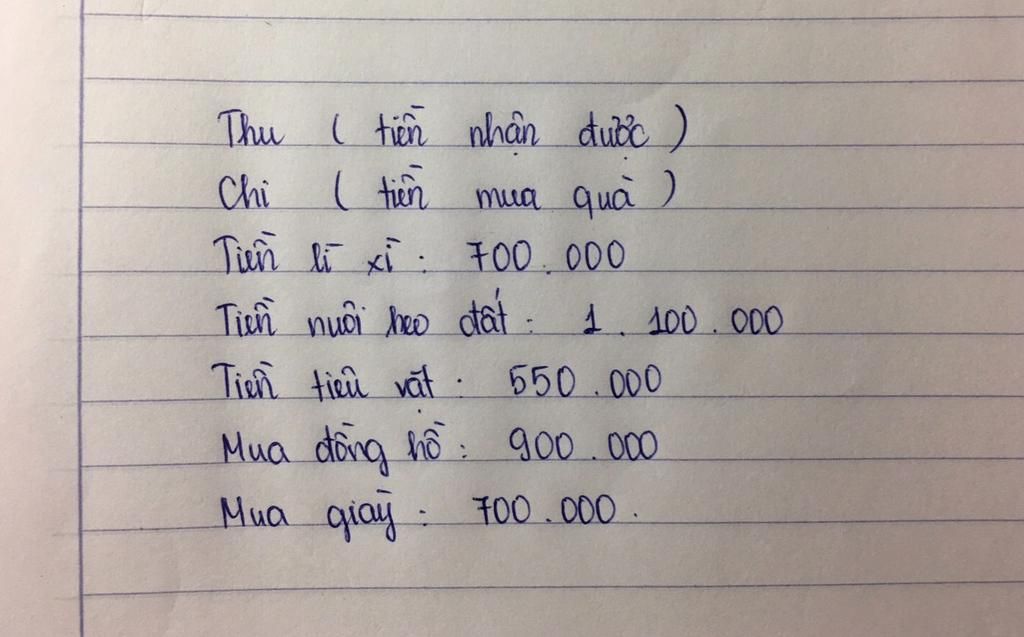 Thu ( tiền nhận được )
Chi ( tiền mua quà )
Tiền lì xì : 700.000
Tiền nuôi heo đất : 1.100.000
Tiền tiêu vặt : 550.000
Mua đồng hồ : 900.000
Mua giày : 700.000.